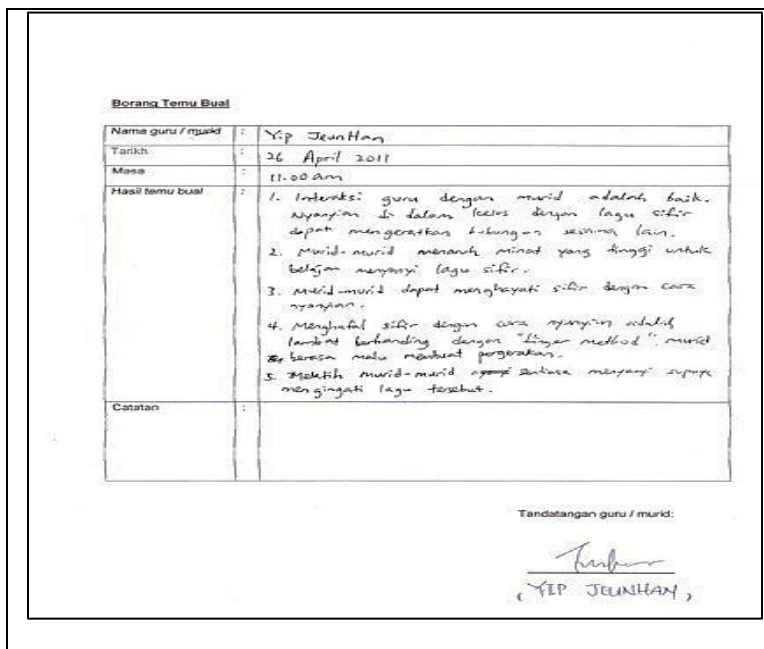 Borang Temu Bual
Nama guru / murid : Yip JeunHan
Tarikh : 26 April 2011
Masa : 11.00 am
Hasil temu bual : 1. Interaksi guru dengan murid adalah baik.
Nyanyian di dalam kelas dengan lagu sifir
dapat mengeratkan hubungan sesama lain.
2. Murid-murid menaruh minat yang tinggi untuk
belajar menyanyi lagu sifir.
3. Murid-murid dapat menghayati sifir dengan cara
nyanyian.
4. Menghafal sifir dengan cara nyanyian adalah
lambat berbanding dengan "finger method". murid
berasa malu membuat pergerakan.
5. Melatih murid-murid sentiasa menyanyi supaya
mengingati lagu tersebut.
Catatan :
Tandatangan guru / murid:
(YIP JEUNHAN)